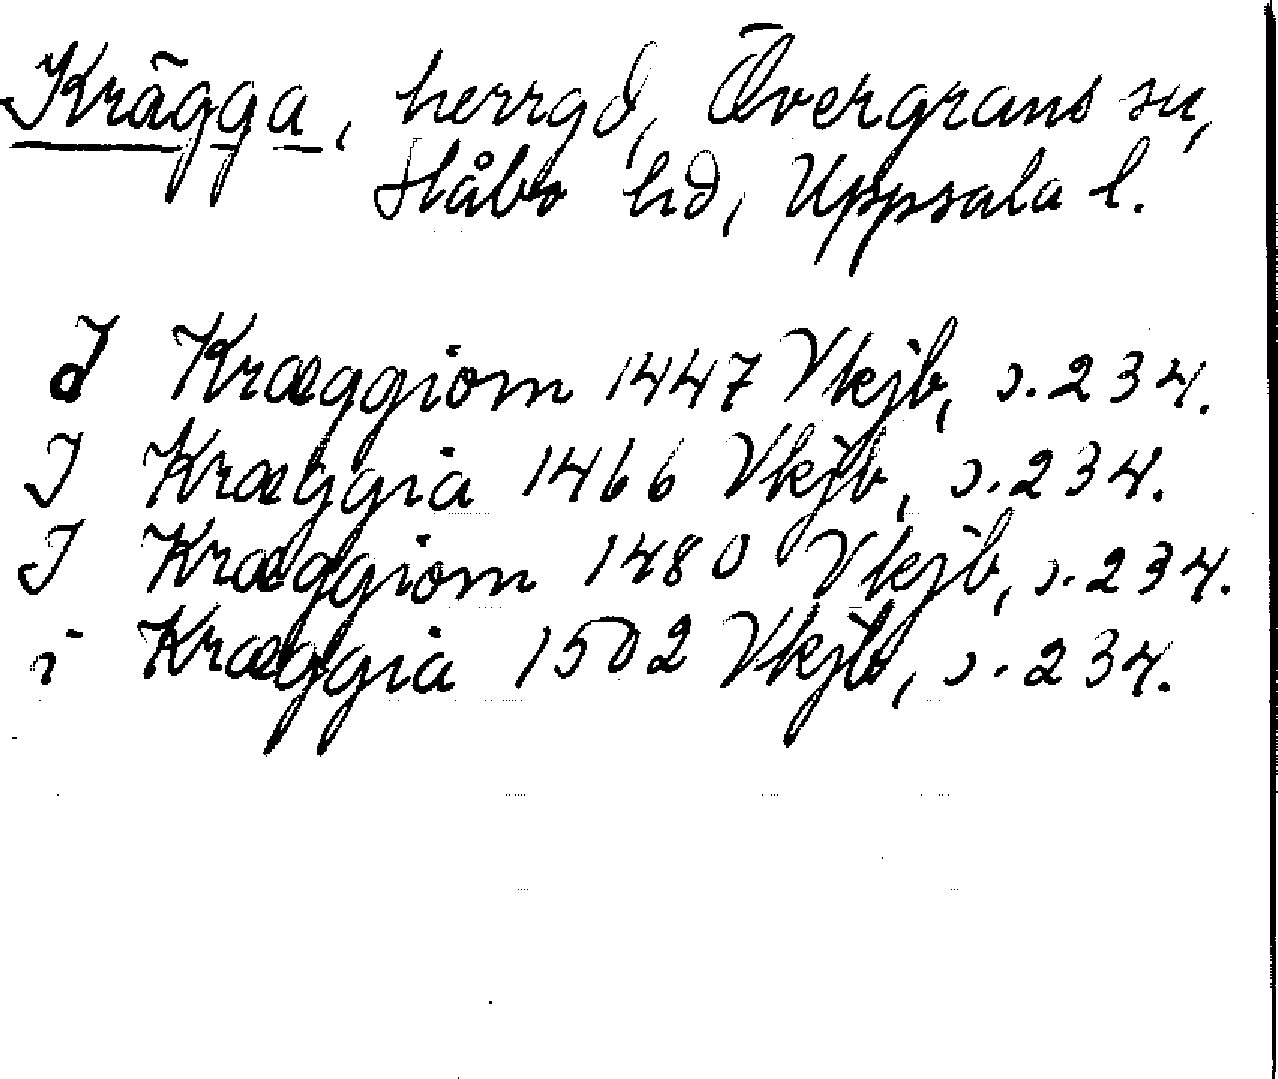 Krägga, herrgd, Övergrans sn,
Håbo hd, Uppsala l.
J Kræggiom 1447 Vkjb, s. 234.
J Kræggia 1466 Vkjb, s. 234.
J Kræggiom 1480 Vkjb, s. 234.
i Kræggia 1502 Vkjb, s. 234.